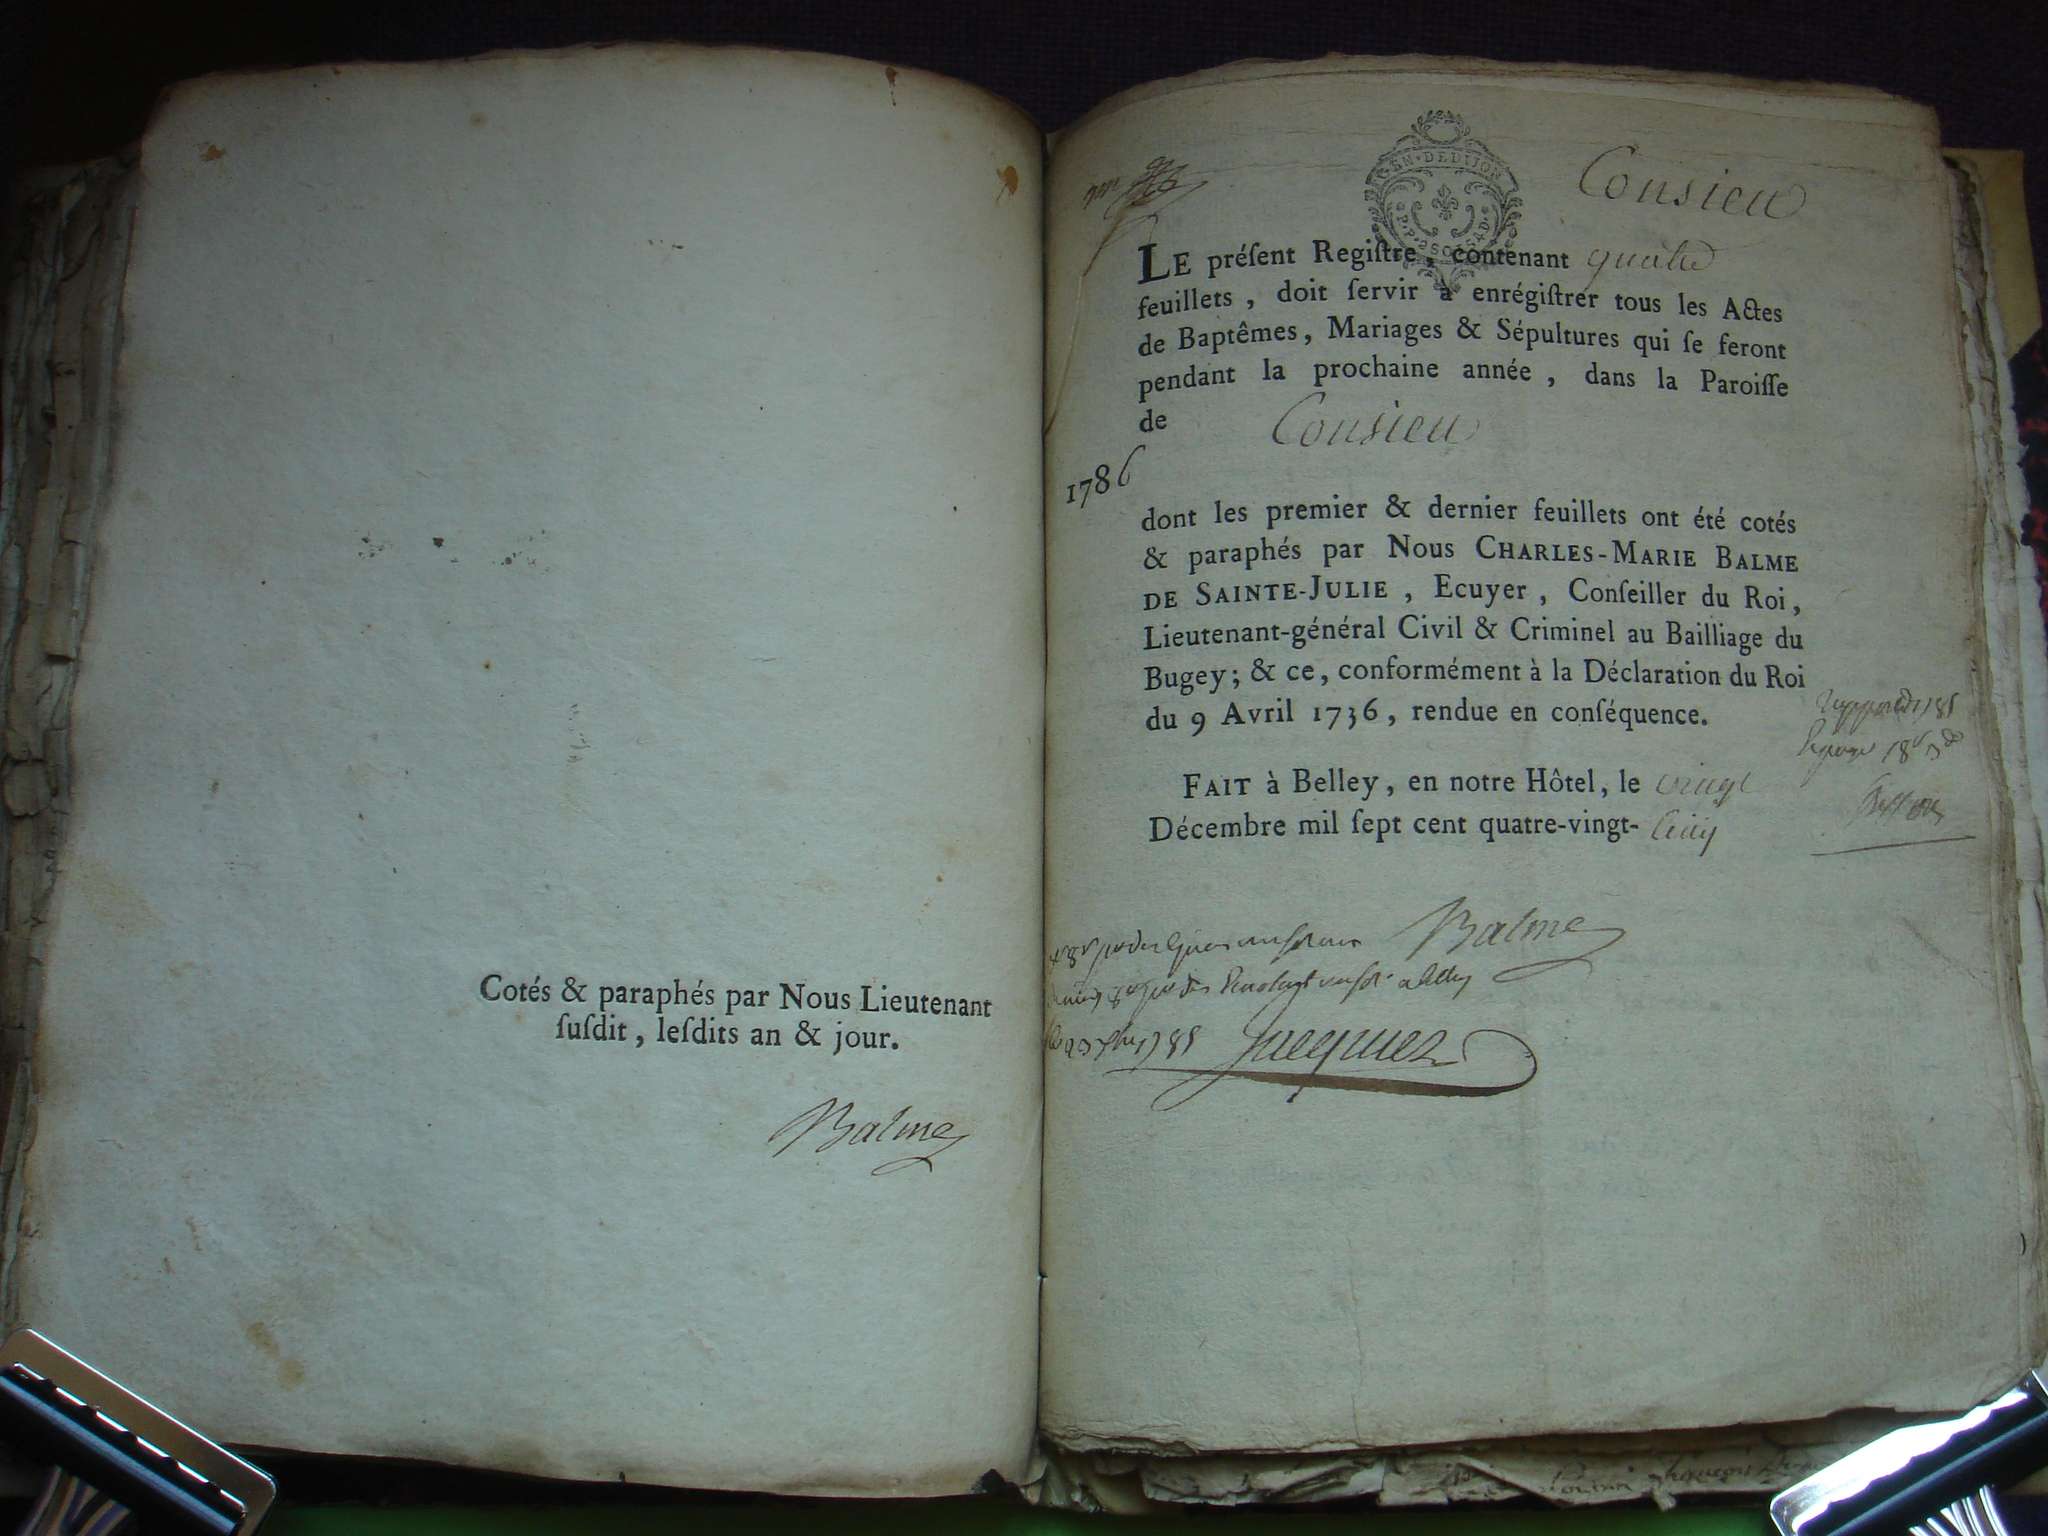 Cotés & paraphés par Nous Lieutenant
ſuſdit, leſdits an & jour.
Balme
GEN • DE DIJON
Consieu
LE préſent Regiſtre, contenant quatre
feuillets, doit ſervir à enrégiſtrer tous les Actes
de Baptêmes, Mariages & Sépultures qui ſe feront
pendant la prochaine année, dans la Paroiſſe
de Consieu
1786
dont les premier & dernier feuillets ont été cotés
& paraphés par Nous CHARLES-MARIE BALME
DE SAINTE-JULIE, Ecuyer, Conſeiller du Roi,
Lieutenant-général Civil & Criminel au Bailliage du
Bugey; & ce, conformément à la Déclaration du Roi
du 9 Avril 1736, rendue en conſéquence.
FAIT à Belley, en notre Hôtel, le vingt
Décembre mil ſept cent quatre-vingt- cinq
Balme
1785 Jacquier